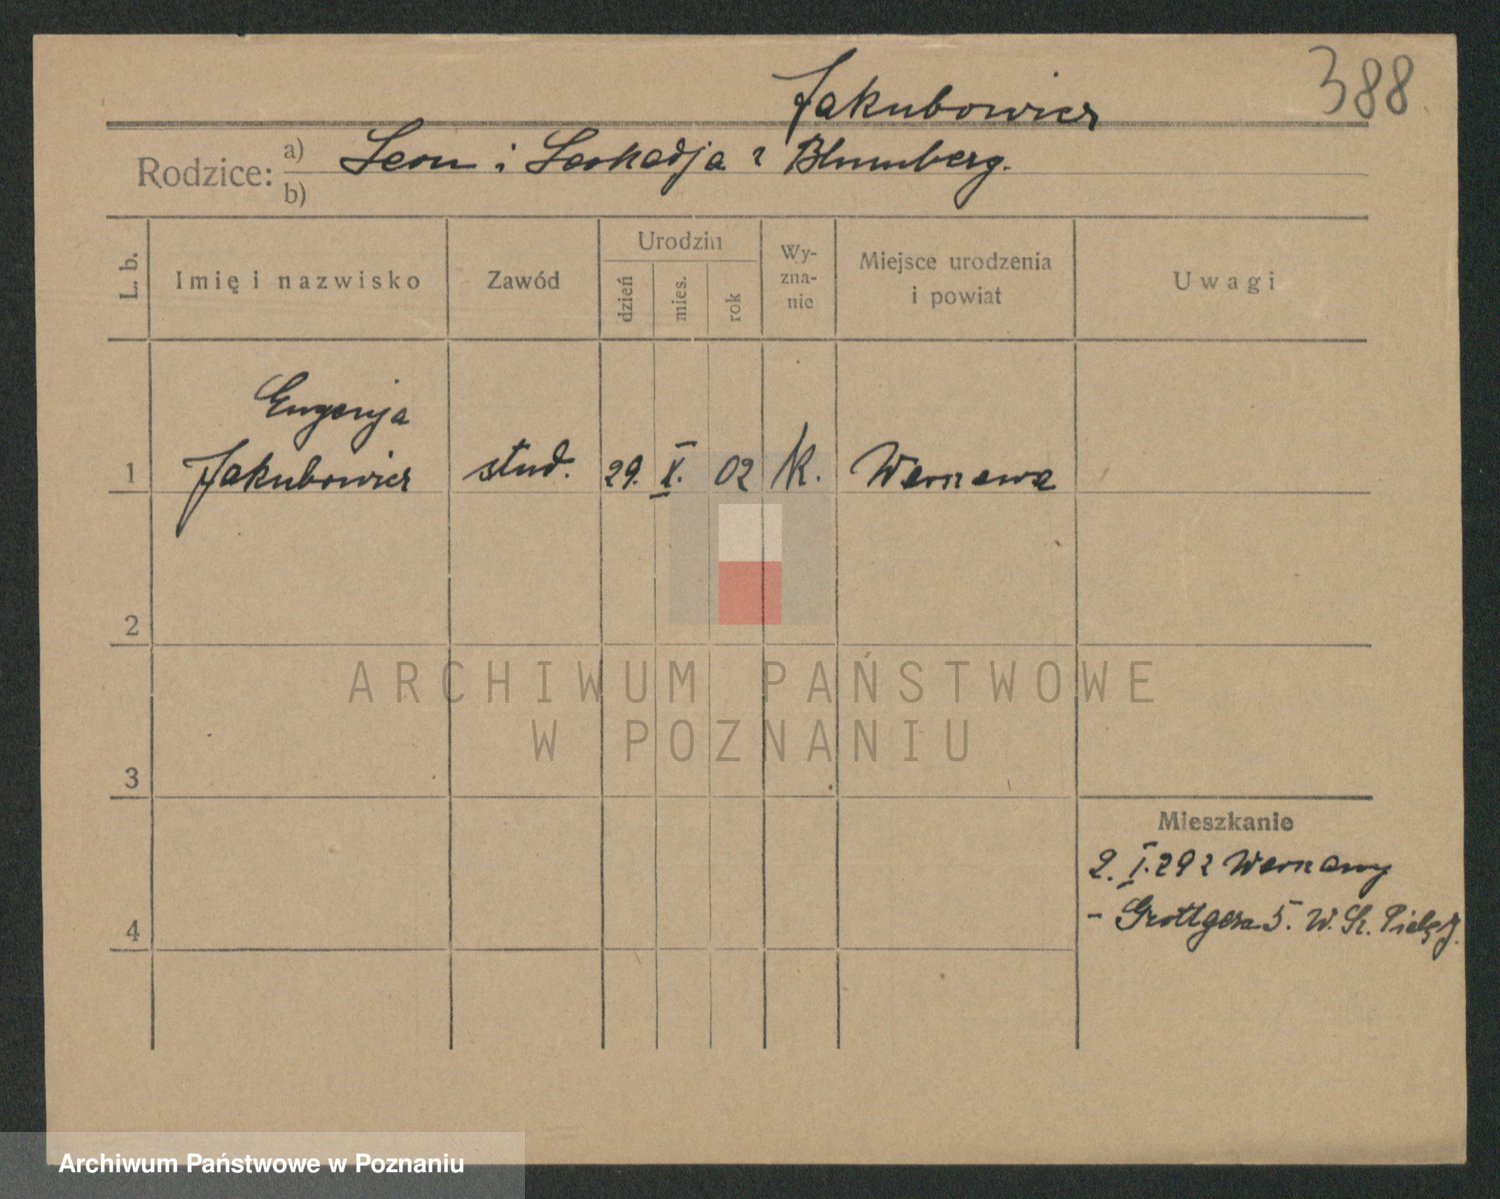 388
Jakubowicz
Rodzice: a) Leon i Leokadja z Blumberg.
b)
L. b. Imię i nazwisko Zawód Urodzin dzień mies. rok Wy-zna-nie Miejsce urodzenia i powiat Uwagi
Eugenja
1 Jakubowicz stud. 29. X. 02 k. Warszawa
2
3
Mieszkanie
2. I. 29 z Warszawy
4 - Grottgera 5. W. Sz.
ARCHIWUM PAŃSTWOWE
W POZNANIU
Archiwum Państwowe w Poznaniu